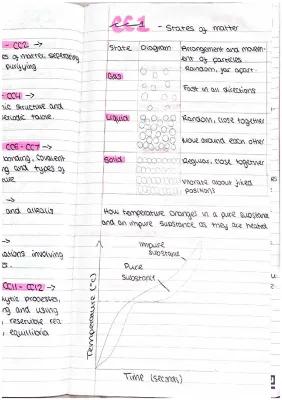 - CC2 →
es of matter, seperating
purifying
- CC4 →
nic structure and
eriodic table.
CC5 - CC7 →
bonding, covalent
ng and types of
→
and alkalis
→
ations involving
s.
CC11 - CC12 →
lytic processes,
ng and using
, reversible rea
, equilibria
CC1 - States of matter
State Diagram Arrangement and movem-
ent of particles
Gas Random, far apart.
Fast in all directions
Liquid Random, close together
Move around each other
Solid Regular, close together
Vibrate about fixed
positions
How temperature changes in a pure substance
and an impure substance as they are heated
Impure
substance
Pure
substance
Temperature (°C)
Time (seconds)